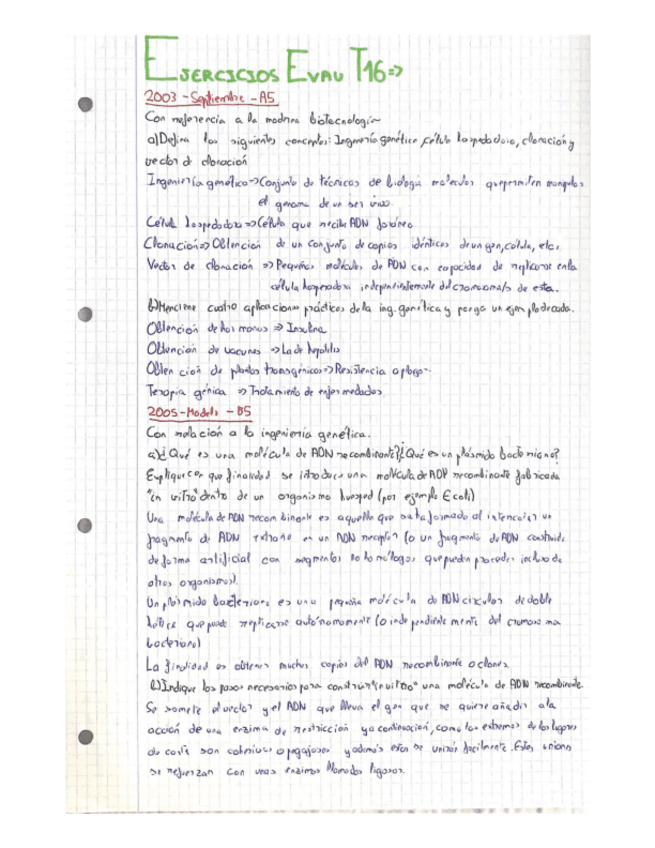 EJERCICIOS EVAU T16=>
2003 - Septiembre - A5
Con referencia a la moderna biotecnología
a) Defina los siguientes conceptos: Ingeniería genética, célula hospedadora, clonación y
vector de clonación
Ingeniería genética => Conjunto de técnicas de biología molecular que permiten manipular
el genoma de un ser vivo.
Célula hospedadora => Célula que recibe ADN foráneo
Clonación => Obtención de un conjunto de copias idénticas de un gen, célula, etc.
Vector de clonación => Pequeñas moléculas de ADN con capacidad de replicarse en la
célula hospedadora independientemente del cromosoma de esta.
b) Mencione cuatro aplicaciones prácticas de la ing. genética y ponga un ejemplo de cada.
Obtención de hormonas => Insulina
Obtención de vacunas => La de hepatitis
Obtención de plantas transgénicas => Resistencia a plagas
Terapia génica => Tratamiento de enfermedades
2005 - Modelo - B5
Con relación a la ingeniería genética.
a) ¿Qué es una molécula de ADN recombinante? ¿Qué es un plásmido bacteriano?
Explique con qué finalidad se introduce una molécula de ADN recombinante fabricada
"in vitro" dentro de un organismo huésped (por ejemplo E coli)
Una molécula de ADN recombinante es aquella que está formada al intercalar un
fragmento de ADN extraño en un ADN receptor (o un fragmento de ADN construido
de forma artificial con segmentos no homólogos que pueden proceder incluso de
otros organismos).
Un plásmido bacteriano es una pequeña molécula de ADN circular de doble
hélice que puede replicarse autónomamente (o independientemente del cromosoma
bacteriano)
La finalidad es obtener muchas copias del ADN recombinante o clones
b) Indique los pasos necesarios para construir "in vitro" una molécula de ADN recombinante.
Se somete el vector y el ADN que lleva el gen que se quiere añadir a la
acción de una enzima de restricción y a continuación, como los extremos de los lugares
de corte son cohesivos o pegajosos y además estos se unirán fácilmente. Estas uniones
se refuerzan con unas enzimas llamadas ligasas.